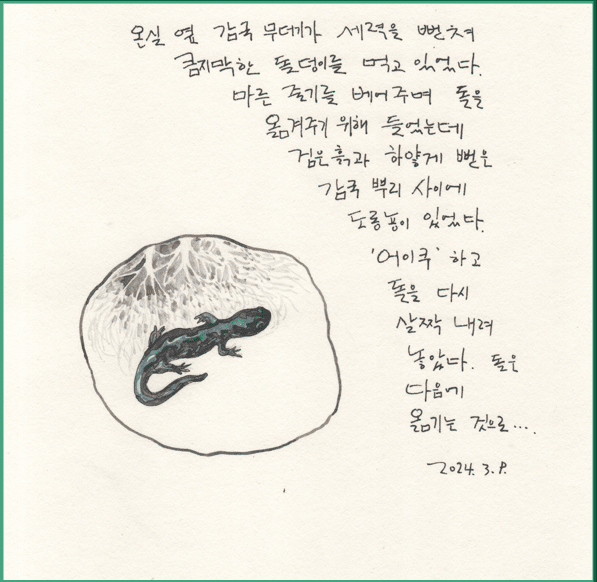 온실 옆 감국 무더기가 세력을 뻗쳐
큼지막한 돌덩이를 먹고 있었다.
마른 줄기를 베어주며 돌을
옮겨주기 위해 들었는데
검은 흙과 하얗게 뻗은
감국 뿌리 사이에
도롱뇽이 있었다.
'어이쿠' 하고
돌을 다시
살짝 내려
놓았다. 돌은
다음에
옮기는 것으로....
2024. 3. 8.